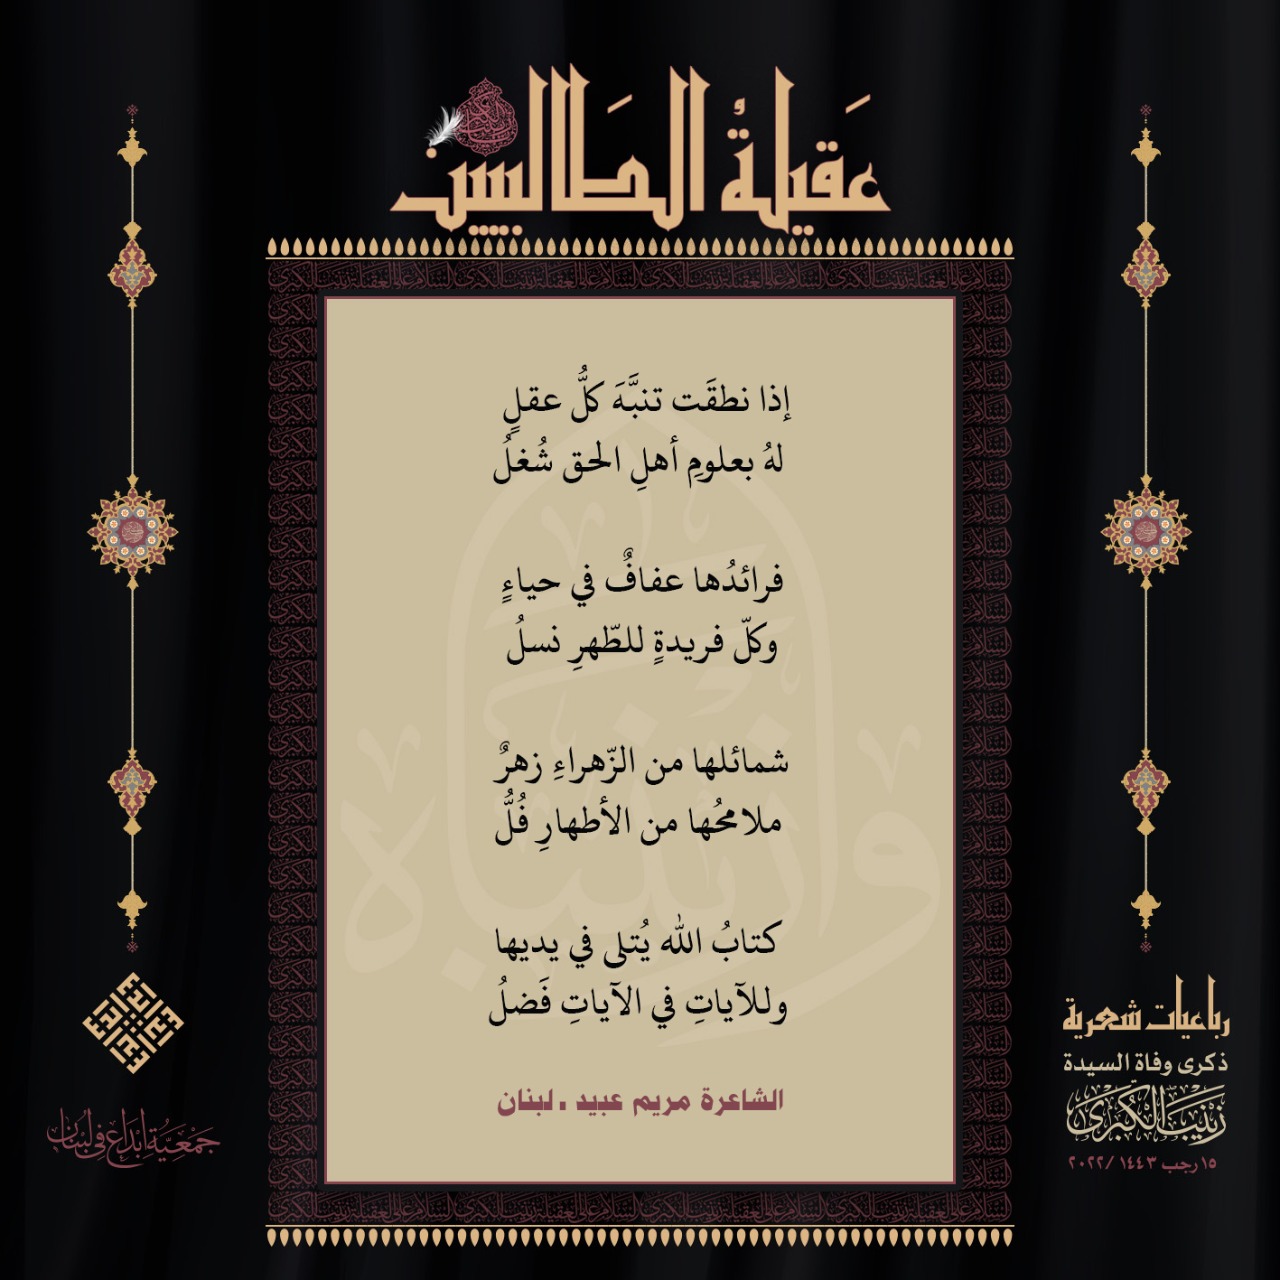 عَقيلةُ الطَالبيين
إذا نطقَت تنبَّهَ كلُّ عقلٍ
لهُ بعلومِ أهلِ الحق شُغلُ
فرائدُها عفافٌ في حياءٍ
وكلّ فريدةٍ للطّهرِ نسلُ
شمائلها من الزّهراءِ زهرٌ
ملامحُها من الأطهارِ فُلُّ
كتابُ الله يُتلى في يديها
وللآياتِ في الآياتِ فَضلُ
الشاعرة مريم عبيد . لبنان
رباعيات شعرية
ذكرى وفاة السيدة
زَيْنَبَ الْكُبْرَى
١٥ رجب ١٤٤٣ /٢٠٢٢
جَمْعِيَّةُ إبْدَاع فِي لُبْنَان
وا زينباه